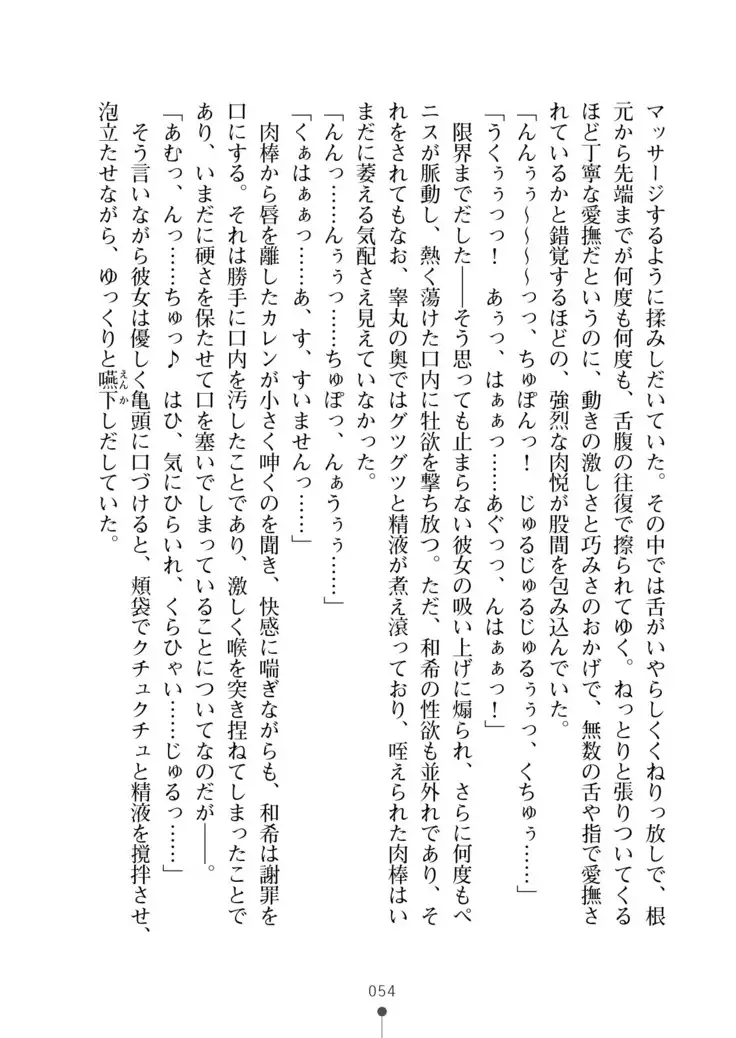 マッサージするように揉みしだいていた。その中では舌がいやらしくくねりっ放しで、根
元から先端までが何度も何度も、舌腹の往復で擦られてゆく。ねっとりと張りついてくる
ほど丁寧な愛撫だというのに、動きの激しさと巧みさのおかげで、無数の舌や指で愛撫さ
れているかと錯覚するほどの、強烈な肉悦が股間を包み込んでいた。
「んんぅぅ～～～～っっ、ちゅぽんっ！　じゅるじゅるじゅるぅぅっ、くちゅぅ……」
「うくぅぅっっ！　あぅっ、はぁぁっ……あぐっっ、んはぁぁっ！」
限界までだした――そう思っても止まらない彼女の吸い上げに煽られ、さらに何度もペ
ニスが脈動し、熱く蕩けた口内に牡欲を撃ち放つ。ただ、和希の性欲も並外れであり、そ
れをされてもなお、睾丸の奥ではグツグツと精液が煮え滾っており、咥えられた肉棒はい
まだに萎える気配さえ見えていなかった。
「んんっ……んぅぅっ……ちゅぽっ、んぁうぅぅ……」
「くぁはぁぁっ……あ、す、すいませんっ……」
肉棒から唇を離したカレンが小さく呻くのを聞き、快感に喘ぎながらも、和希は謝罪を
口にする。それは勝手に口内を汚したことであり、激しく喉を突き捏ねてしまったことで
あり、いまだに硬さを保たせて口を塞いでしまっていることについてなのだが――。
「あむっ、んっ……ちゅっ♪　はひ、気にひらいれ、くらひゃい……じゅるっ……」
そう言いながら彼女は優しく亀頭に口づけると、頬袋でクチュクチュと精液を撹拌させ、
泡立たせながら、ゆっくりと嚥下しだしていた。
えんか
054